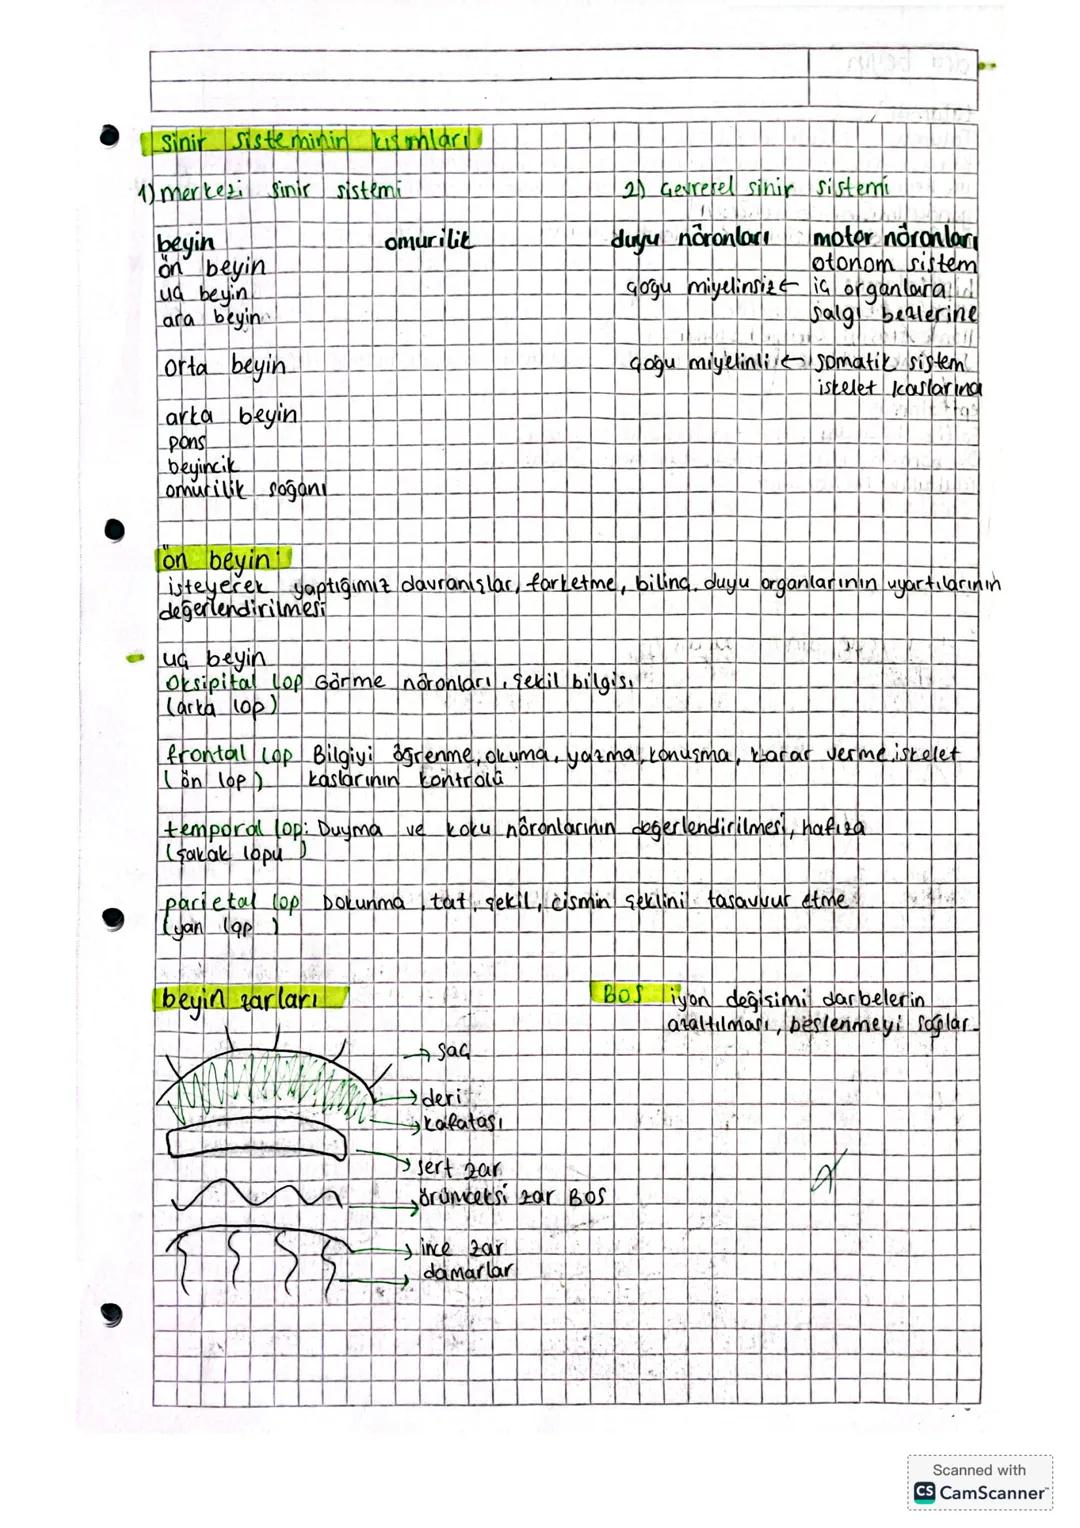 Sinir Sisteminin kısımları
1) merkezi sinir sistemi 2) Çevresel sinir sistemi
beyin omurilik duyu nöronları motor nöronları
ön beyin otonom sistem
uç beyin çoğu miyelinsiz ← iç organlara
ara beyin salgı bezlerine
orta beyin çoğu miyelinli ← somatik sistem
iskelet kaslarına
arka beyin
pons
beyincik
omurilik soğanı
ön beyin:
isteyerek yaptığımız davranışlar, farketme, bilinç, duyu organlarının uyartılarının
değerlendirilmesi
uç beyin
Oksipital lop Görme nöronları, şekil bilgisi
(arka lop)
frontal lop Bilgiyi öğrenme, okuma, yazma, konuşma, karar verme, iskelet
(ön lop) kaslarının kontrolü
temporal lop: Duyma ve koku nöronlarının değerlendirilmesi, hafıza
(şakak lopu)
parietal lop Dokunma, tat, şekil, cismin şeklini tasavvur etme
(yan lop)
beyin zarları BOS iyon değişimi darbelerin
azaltılması, beslenmeyi sağlar.
→ saç
→ deri
→ kafatası
→ sert zar
→ örümceksi zar BOS
→ ince zar
→ damarlar
Scanned with
CS CamScanner